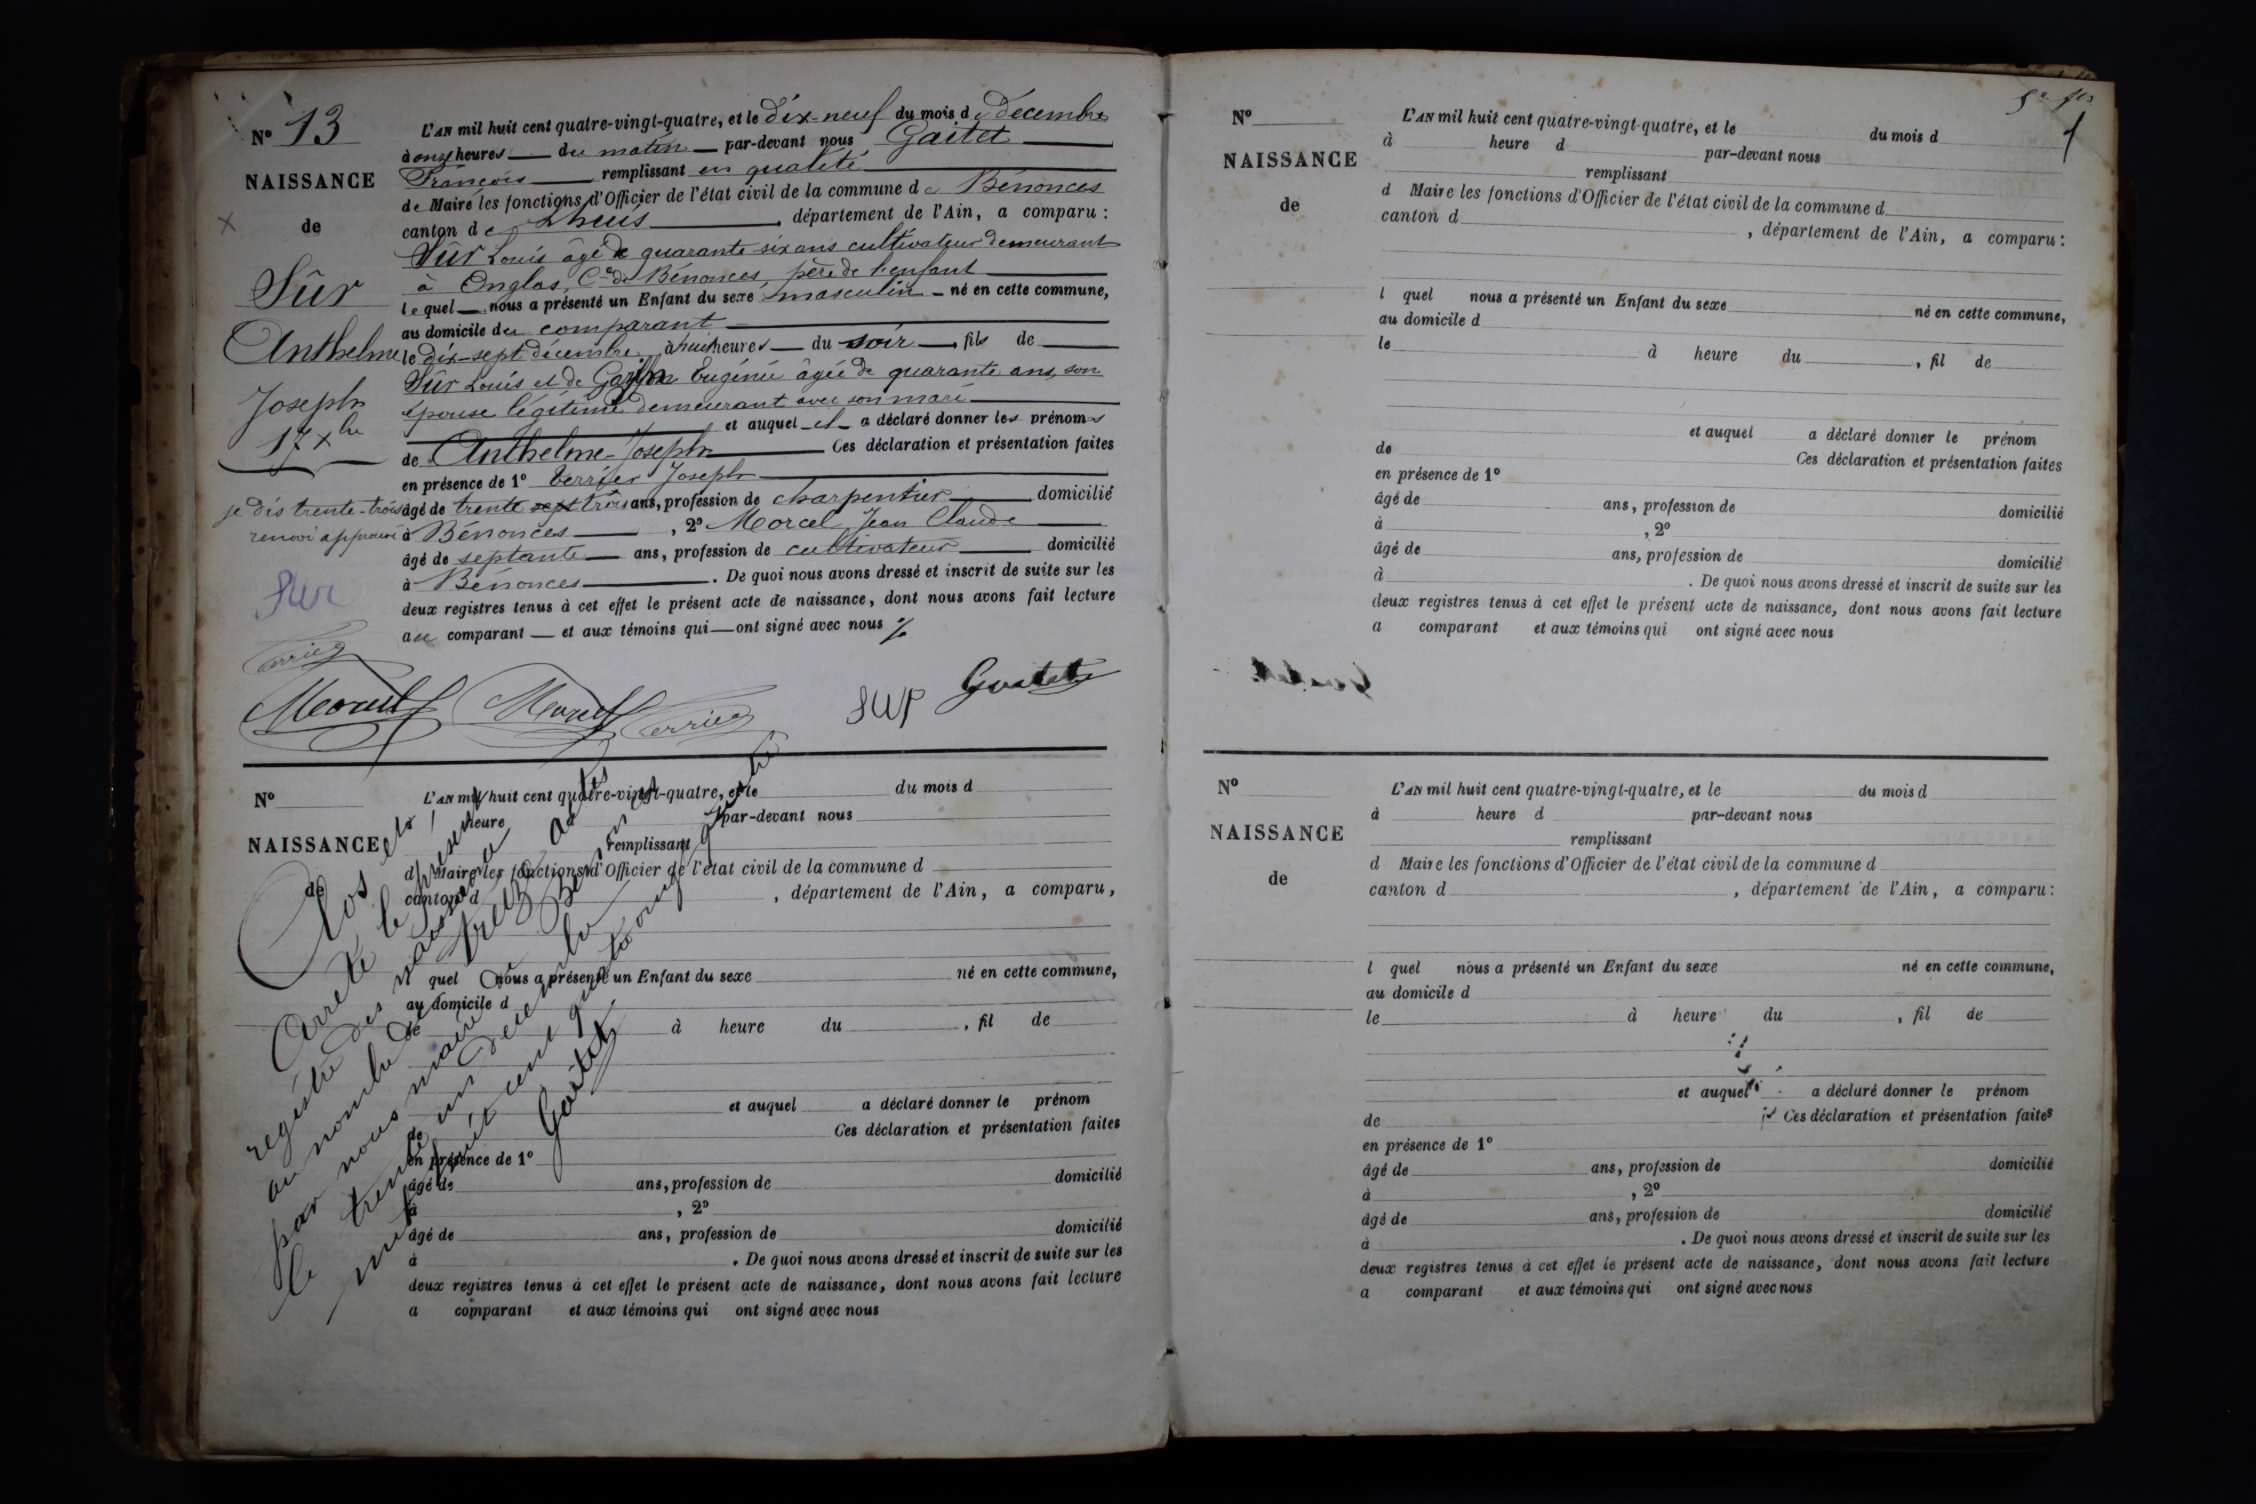 Nº 13
NAISSANCE
de
Sûr
Anthelme
Joseph
17 Xbre
L'AN mil huit cent quatre-vingt-quatre, et le dix-neuf du mois de décembre
à onze heures du matin par-devant nous Gaitet
François remplissant en qualité
de Maire les fonctions d'Officier de l'état civil de la commune de Bénonces
canton de Lhuis, département de l'Ain, a comparu :
Sûr Louis âgé de quarante six ans cultivateur demeurant
à Onglas, Cne de Bénonces, père de l'enfant
lequel nous a présenté un Enfant du sexe masculin né en cette commune,
au domicile du comparant
le dix-sept décembre à huit heures du soir, fils de
Sûr Louis et de Eugénie âgée de quarante ans, son
épouse légitime demeurant avec son mari
et auquel il a déclaré donner les prénoms
de Anthelme-Joseph Ces déclaration et présentation faites
en présence de 1º Verrier Joseph
âgé de trente sept trois ans, profession de charpentier domicilié
je dis trente-trois
renvoi approuvé
à Bénonces, 2º Morcel Jean Claude
âgé de septante ans, profession de cultivateur domicilié
à Bénonces. De quoi nous avons dressé et inscrit de suite sur les
deux registres tenus à cet effet le présent acte de naissance, dont nous avons fait lecture
au comparant et aux témoins qui ont signé avec nous
Sur
Verrier
Morcel Morcel Verrier Sur Gaitet
Nº
NAISSANCE
de
L'AN mil huit cent quatre-vingt-quatre, et le du mois d
heure par-devant nous
remplissant
d Maire les fonctions d'Officier de l'état civil de la commune d
canton d , département de l'Ain, a comparu,
l quel nous a présenté un Enfant du sexe né en cette commune,
au domicile d
le à heure du , fil de
et auquel a déclaré donner le prénom
de Ces déclaration et présentation faites
en présence de 1º
âgé de ans, profession de domicilié
à , 2º
âgé de ans, profession de domicilié
à . De quoi nous avons dressé et inscrit de suite sur les
deux registres tenus à cet effet le présent acte de naissance, dont nous avons fait lecture
a comparant et aux témoins qui ont signé avec nous
Clos et
Arrêté le présent
registre des naissances
au nombre de treize actes
par nous maire de Bénonces
le trente un décembre
mil huit cent quatre vingt quatre
Gaitet
Nº
NAISSANCE
de
L'AN mil huit cent quatre-vingt-quatre, et le du mois d
à heure d par-devant nous
remplissant
d Maire les fonctions d'Officier de l'état civil de la commune d
canton d , département de l'Ain, a comparu :
l quel nous a présenté un Enfant du sexe né en cette commune,
au domicile d
le à heure du , fil de
et auquel a déclaré donner le prénom
de Ces déclaration et présentation faites
en présence de 1º
âgé de ans, profession de domicilié
à , 2º
âgé de ans, profession de domicilié
à . De quoi nous avons dressé et inscrit de suite sur les
deux registres tenus à cet effet le présent acte de naissance, dont nous avons fait lecture
a comparant et aux témoins qui ont signé avec nous
Nº
NAISSANCE
de
L'AN mil huit cent quatre-vingt-quatre, et le du mois d
à heure d par-devant nous
remplissant
d Maire les fonctions d'Officier de l'état civil de la commune d
canton d , département de l'Ain, a comparu :
l quel nous a présenté un Enfant du sexe né en cette commune,
au domicile d
le à heure du , fil de
et auquel a déclaré donner le prénom
de Ces déclaration et présentation faites
en présence de 1º
âgé de ans, profession de domicilié
à , 2º
âgé de ans, profession de domicilié
à . De quoi nous avons dressé et inscrit de suite sur les
deux registres tenus à cet effet le présent acte de naissance, dont nous avons fait lecture
a comparant et aux témoins qui ont signé avec nous